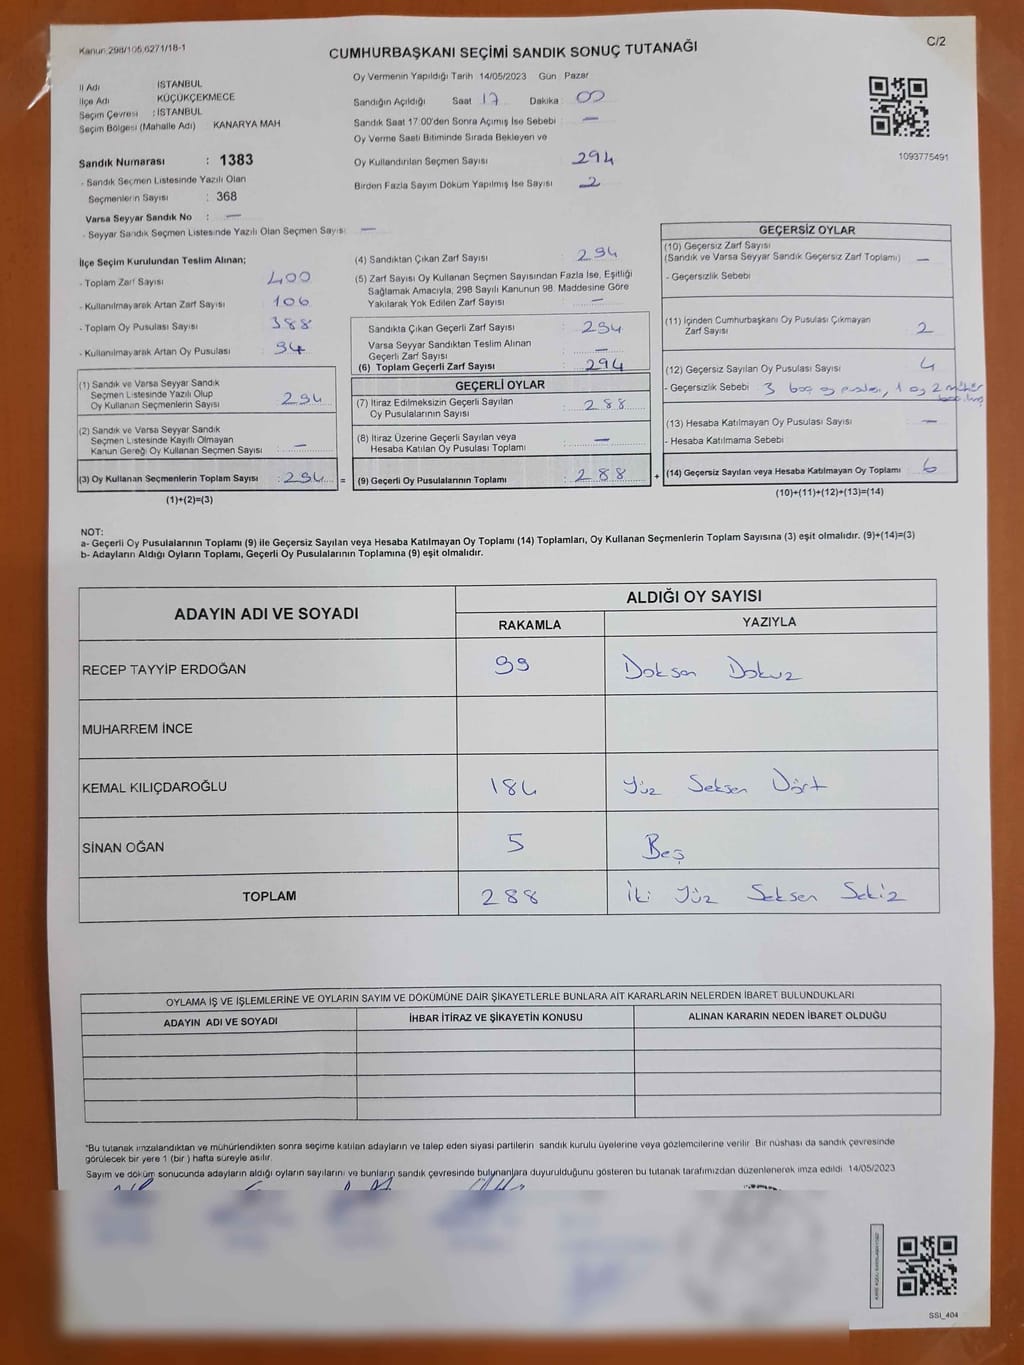 Kanun:298/106,6271/18-1
CUMHURBAŞKANI SEÇİMİ SANDIK SONUÇ TUTANAĞI
C/2
İl Adı : İSTANBUL
İlçe Adı : KÜÇÜKÇEKMECE
Seçim Çevresi : İSTANBUL
Seçim Bölgesi (Mahalle Adı) KANARYA MAH
Sandık Numarası : 1383
- Sandık Seçmen Listesinde Yazılı Olan
Seçmenlerin Sayısı : 368
Varsa Seyyar Sandık No : —
- Seyyar Sandık Seçmen Listesinde Yazılı Olan Seçmen Sayısı —
Oy Vermenin Yapıldığı Tarih 14/05/2023 Gün Pazar
Sandığın Açıldığı Saat 17 Dakika : 00
Sandık Saat 17:00'den Sonra Açımış İse Sebebi : —
Oy Verme Saati Bitiminde Sırada Bekleyen ve
Oy Kullandırılan Seçmen Sayısı 294
Birden Fazla Sayım Döküm Yapılmış İse Sayısı 2
1093775491
İlçe Seçim Kurulundan Teslim Alınan;
- Toplam Zarf Sayısı : 400
- Kullanılmayarak Artan Zarf Sayısı : 106
- Toplam Oy Pusulası Sayısı : 388
- Kullanılmayarak Artan Oy Pusulası : 94
(1) Sandık ve Varsa Seyyar Sandık
Seçmen Listesinde Yazılı Olup
Oy Kullanan Seçmenlerin Sayısı : 294
(2) Sandık ve Varsa Seyyar Sandık
Seçmen Listesinde Kayıtlı Olmayan
Kanun Gereği Oy Kullanan Seçmen Sayısı : —
(3) Oy Kullanan Seçmenlerin Toplam Sayısı : 294 =
(1)+(2)=(3)
(4) Sandıktan Çıkan Zarf Sayısı : 294
(5) Zarf Sayısı Oy Kullanan Seçmen Sayısından Fazla İse, Eşitliği
Sağlamak Amacıyla, 298 Sayılı Kanunun 98. Maddesine Göre
Yakılarak Yok Edilen Zarf Sayısı : —
Sandıkta Çıkan Geçerli Zarf Sayısı : 294
Varsa Seyyar Sandıktan Teslim Alınan
Geçerli Zarf Sayısı : —
(6) Toplam Geçerli Zarf Sayısı : 294
GEÇERLİ OYLAR
(7) İtiraz Edilmeksizin Geçerli Sayılan
Oy Pusulalarının Sayısı : 288
(8) İtiraz Üzerine Geçerli Sayılan veya
Hesaba Katılan Oy Pusulası Toplamı : —
(9) Geçerli Oy Pusulalarının Toplamı : 288 +
GEÇERSİZ OYLAR
(10) Geçersiz Zarf Sayısı
(Sandık ve Varsa Seyyar Sandık Geçersiz Zarf Toplamı) : —
- Geçersizlik Sebebi
(11) İçinden Cumhurbaşkanı Oy Pusulası Çıkmayan
Zarf Sayısı : 2
(12) Geçersiz Sayılan Oy Pusulası Sayısı : 4
- Geçersizlik Sebebi 3 boş oy pusulası, 1 oy 2 mühür
(13) Hesaba Katılmayan Oy Pusulası Sayısı : —
- Hesaba Katılmama Sebebi
(14) Geçersiz Sayılan veya Hesaba Katılmayan Oy Toplamı : 6
(10)+(11)+(12)+(13)=(14)
NOT:
a- Geçerli Oy Pusulalarının Toplamı (9) ile Geçersiz Sayılan veya Hesaba Katılmayan Oy Toplamı (14) Toplamları, Oy Kullanan Seçmenlerin Toplam Sayısına (3) eşit olmalıdır. (9)+(14)=(3)
b- Adayların Aldığı Oyların Toplamı, Geçerli Oy Pusulalarının Toplamına (9) eşit olmalıdır.
ADAYIN ADI VE SOYADI
ALDIĞI OY SAYISI
RAKAMLA YAZIYLA
RECEP TAYYİP ERDOĞAN 99 Doksan Dokuz
MUHARREM İNCE
KEMAL KILIÇDAROĞLU 184 Yüz Seksen Dört
SİNAN OĞAN 5 Beş
TOPLAM 288 İki Yüz Seksen Sekiz
OYLAMA İŞ VE İŞLEMLERİNE VE OYLARIN SAYIM VE DÖKÜMÜNE DAİR ŞİKAYETLERLE BUNLARA AİT KARARLARIN NELERDEN İBARET BULUNDUKLARI
ADAYIN ADI VE SOYADI İHBAR İTİRAZ VE ŞİKAYETİN KONUSU ALINAN KARARIN NEDEN İBARET OLDUĞU
*Bu tutanak imzalandıktan ve mühürlendikten sonra seçime katılan adayların ve talep eden siyasi partilerin sandık kurulu üyelerine veya gözlemcilerine verilir. Bir nüshası da sandık çevresinde
görülecek bir yere 1 (bir) hafta süreyle asılır.
Sayım ve döküm sonucunda adayların aldığı oyların sayılarını ve bunların sandık çevresinde bulunanlara duyurulduğunu gösteren bu tutanak tarafımızdan düzenlenerek imza edildi. 14/05/2023
SSI_404